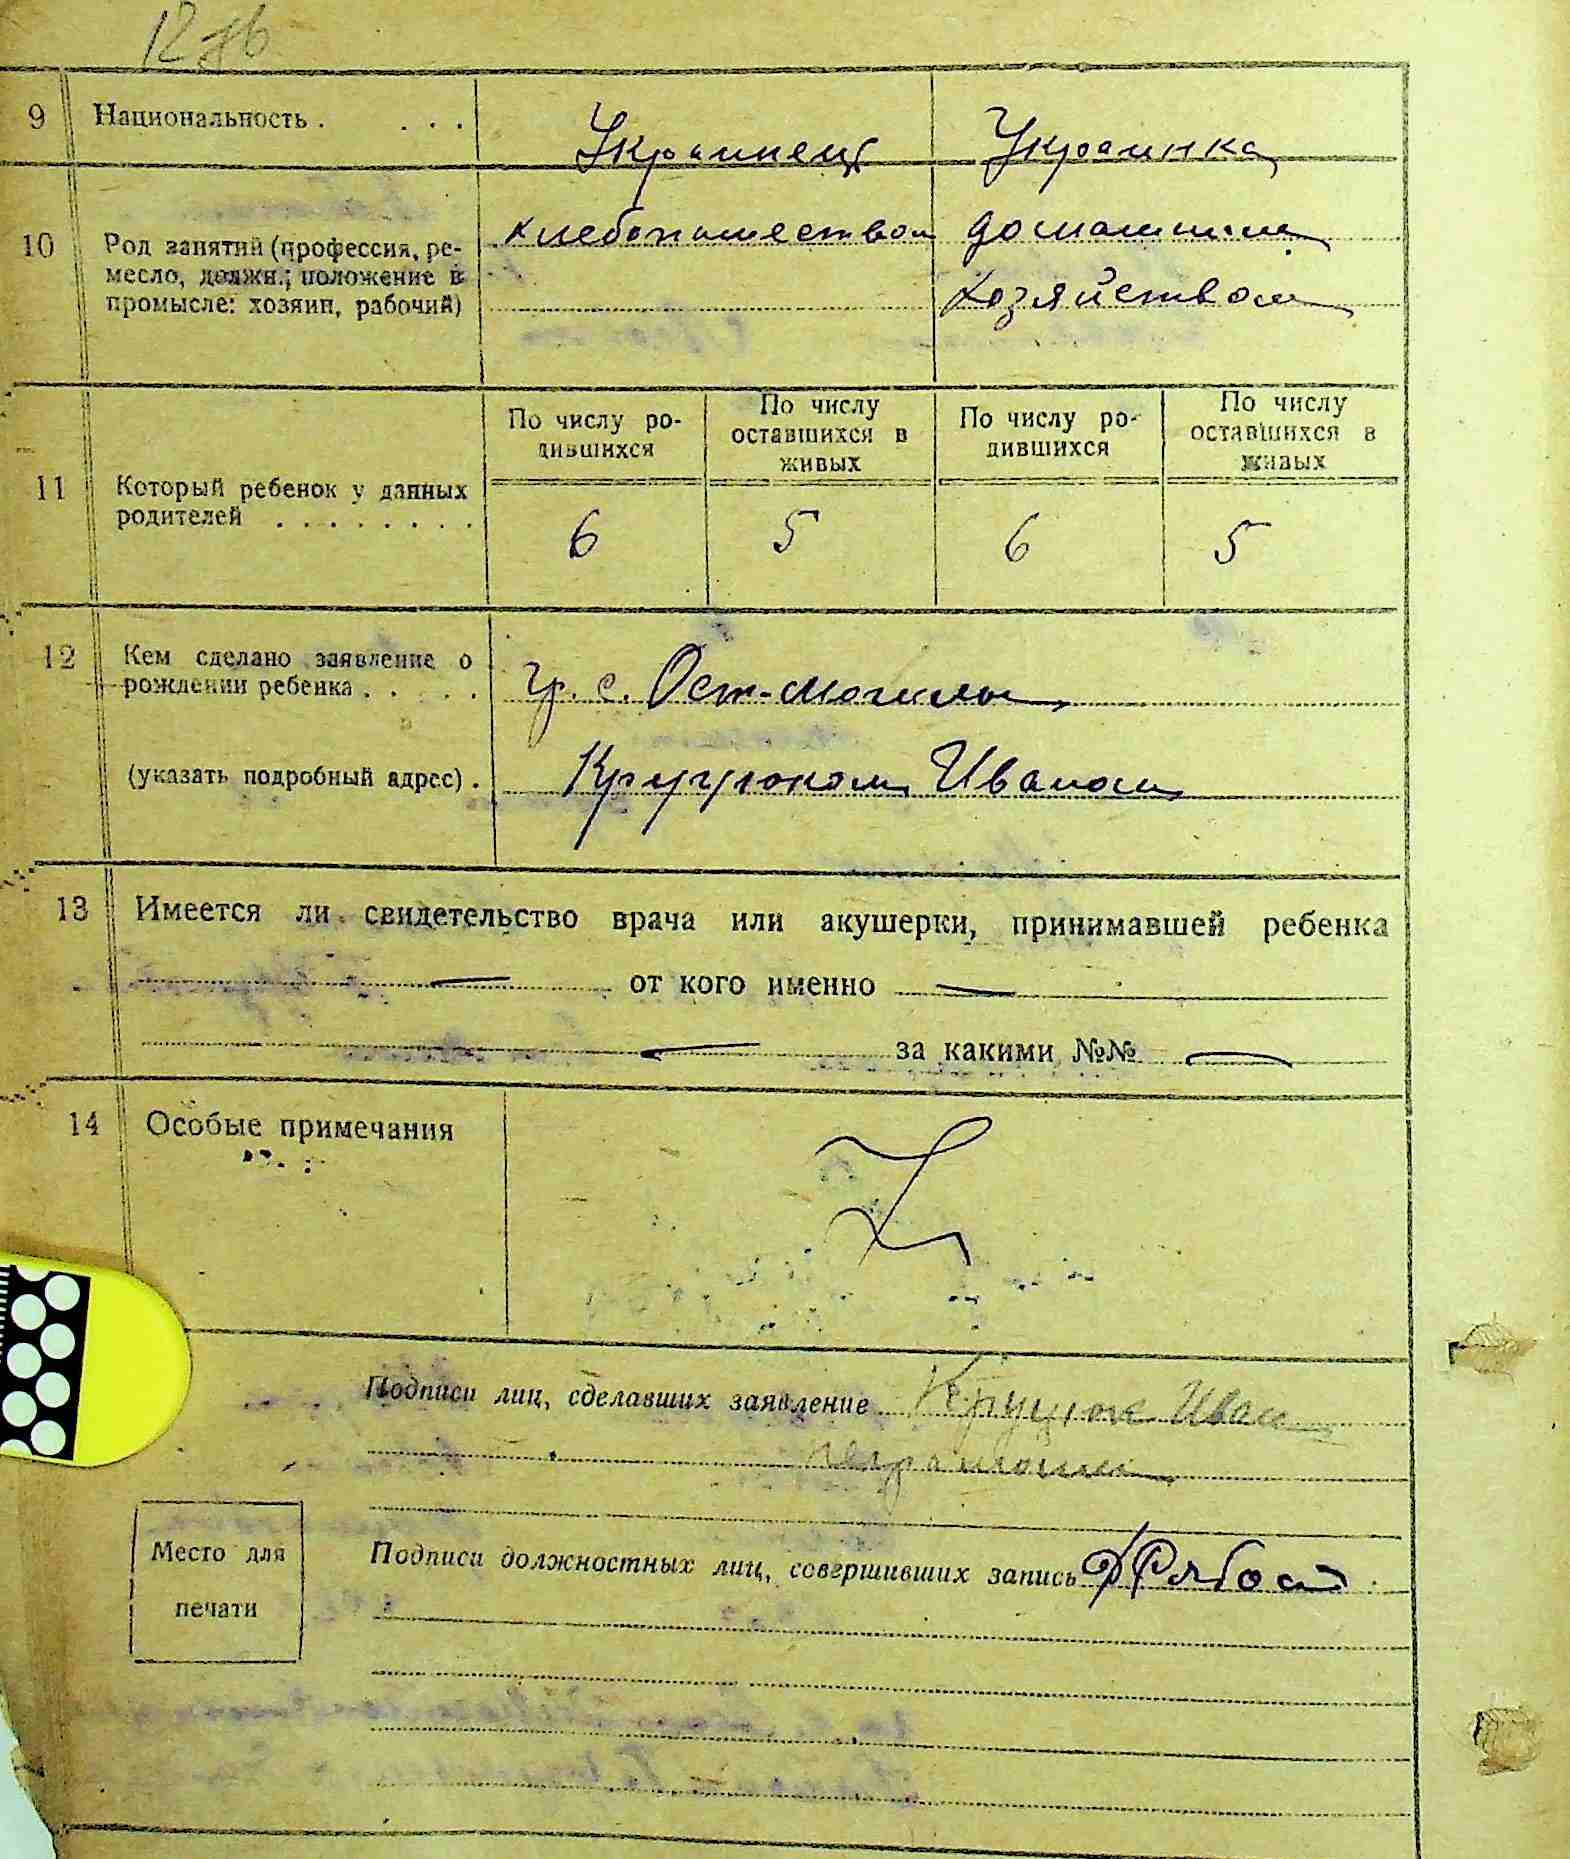 12
9 Национальность . . . . Украинец Украинка
10 Род занятий (профессия, ре-
месло, должн.; положение в
промысле: хозяин, рабочий)
хлебопашеством домашним
хозяйством
По числу ро-
дившихся
По числу
оставшихся в
живых
По числу ро-
дившихся
По числу
оставшихся в
живых
11 Который ребенок у данных
родителей . . . . . . . .
6 5 6 5
12 Кем сделано заявление о
рождении ребенка . . . . гр. с. Ост-Могилы
(указать подробный адрес) . Иваном
13 Имеется ли свидетельство врача или акушерки, принимавшей ребенка
— от кого именно —
— за какими №№ —
14 Особые примечания
Подписи лиц, сделавших заявление Иван
неграмотн
Место для
печати
Подписи должностных лиц, совершивших запись